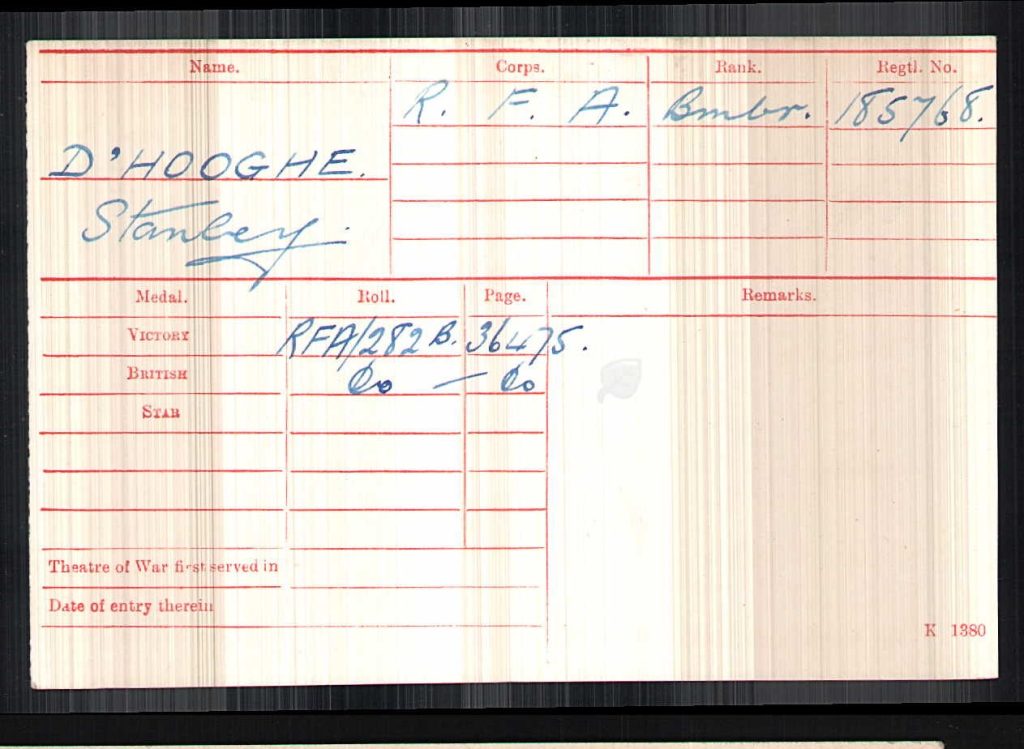 Name. Corps. Rank. Regtl. No.
R. F. A. Bmbr. 185768.
D'HOOGHE.
Stanley.
Medal. Roll. Page. Remarks.
VICTORY RFA/282 B. 36475.
BRITISH Do — Do
STAR
Theatre of War first served in
Date of entry therein
K 1380